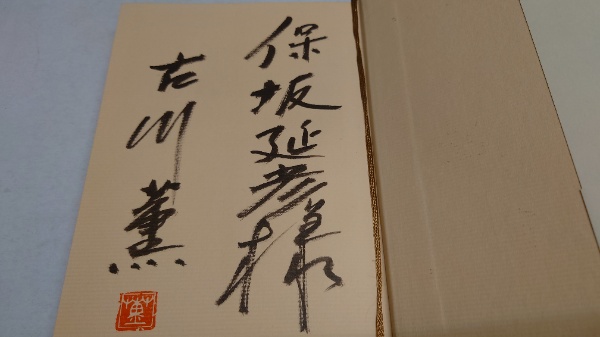 保坂延彦様
古川薫
薫